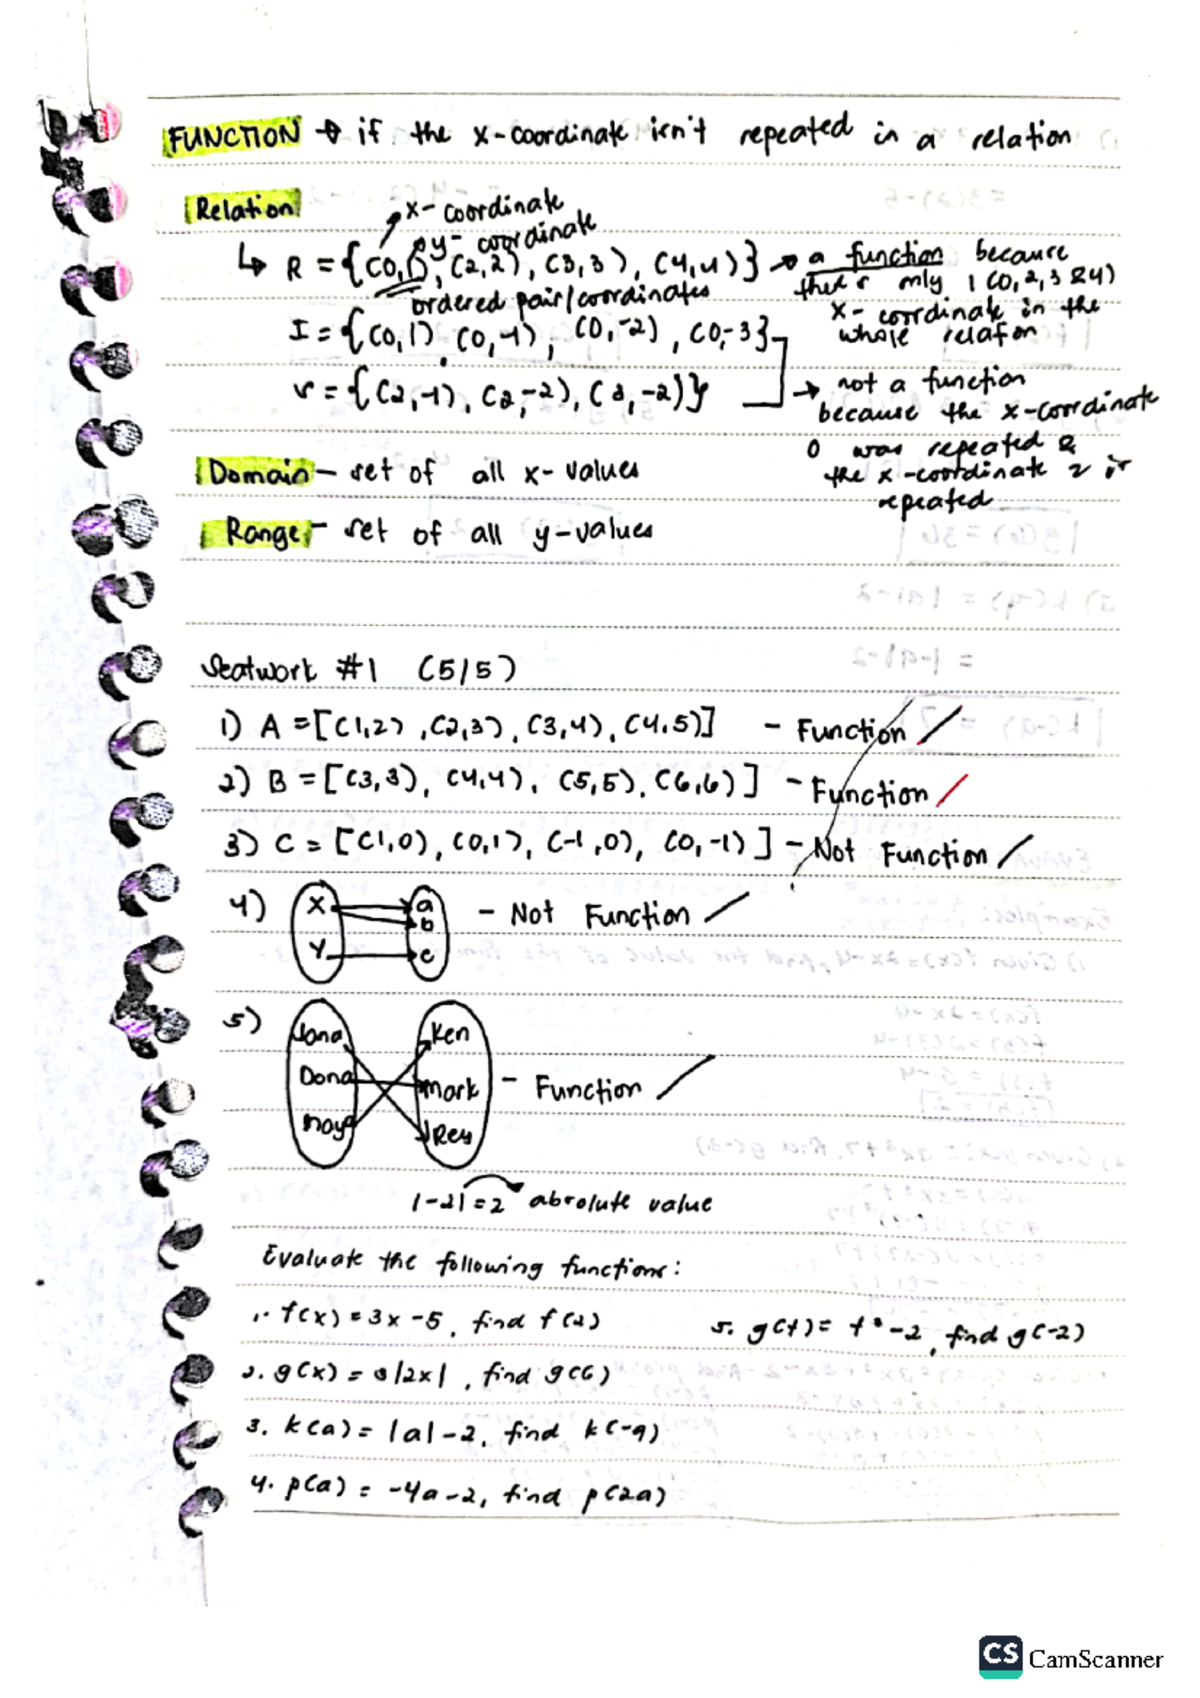 FUNCTION → if the x-coordinate isn't repeated in a relation
Relation
x-coordinate
y-coordinate
↳ R = {(0,1), (2,2), (3,3), (4,4)} → a function because
there's only 1 (0,2,3 & 4)
x-coordinate in the
whole relation
ordered pair/coordinates
I = {(0,1), (0,-1), (0,-2), (0,-3}
r = {(2,-1), (2,-2), (2,-2)}
→ not a function
because the x-coordinate
0 was repeated &
the x-coordinate 2 is
repeated
Domain - set of all x-values
Range - set of all y-values
Seatwork #1 (5/5)
1) A = [(1,2), (2,3), (3,4), (4,5)] - Function /
2) B = [(3,3), (4,4), (5,5), (6,6)] - Function /
3) C = [(1,0), (0,1), (-1,0), (0,-1)] - Not Function /
4) X a
b
Y c
- Not Function /
5) Jona Ken
Dona Mark - Function /
Rey
|-2| = 2 absolute value
Evaluate the following functions:
1. f(x) = 3x - 5, find f(2)
2. g(x) = 3|2x|, find g(6)
3. k(a) = |a| - 2, find k(-9)
4. p(a) = -4a - 2, find p(2a)
5. g(t) = t³ - 2, find g(-2)
CS CamScanner